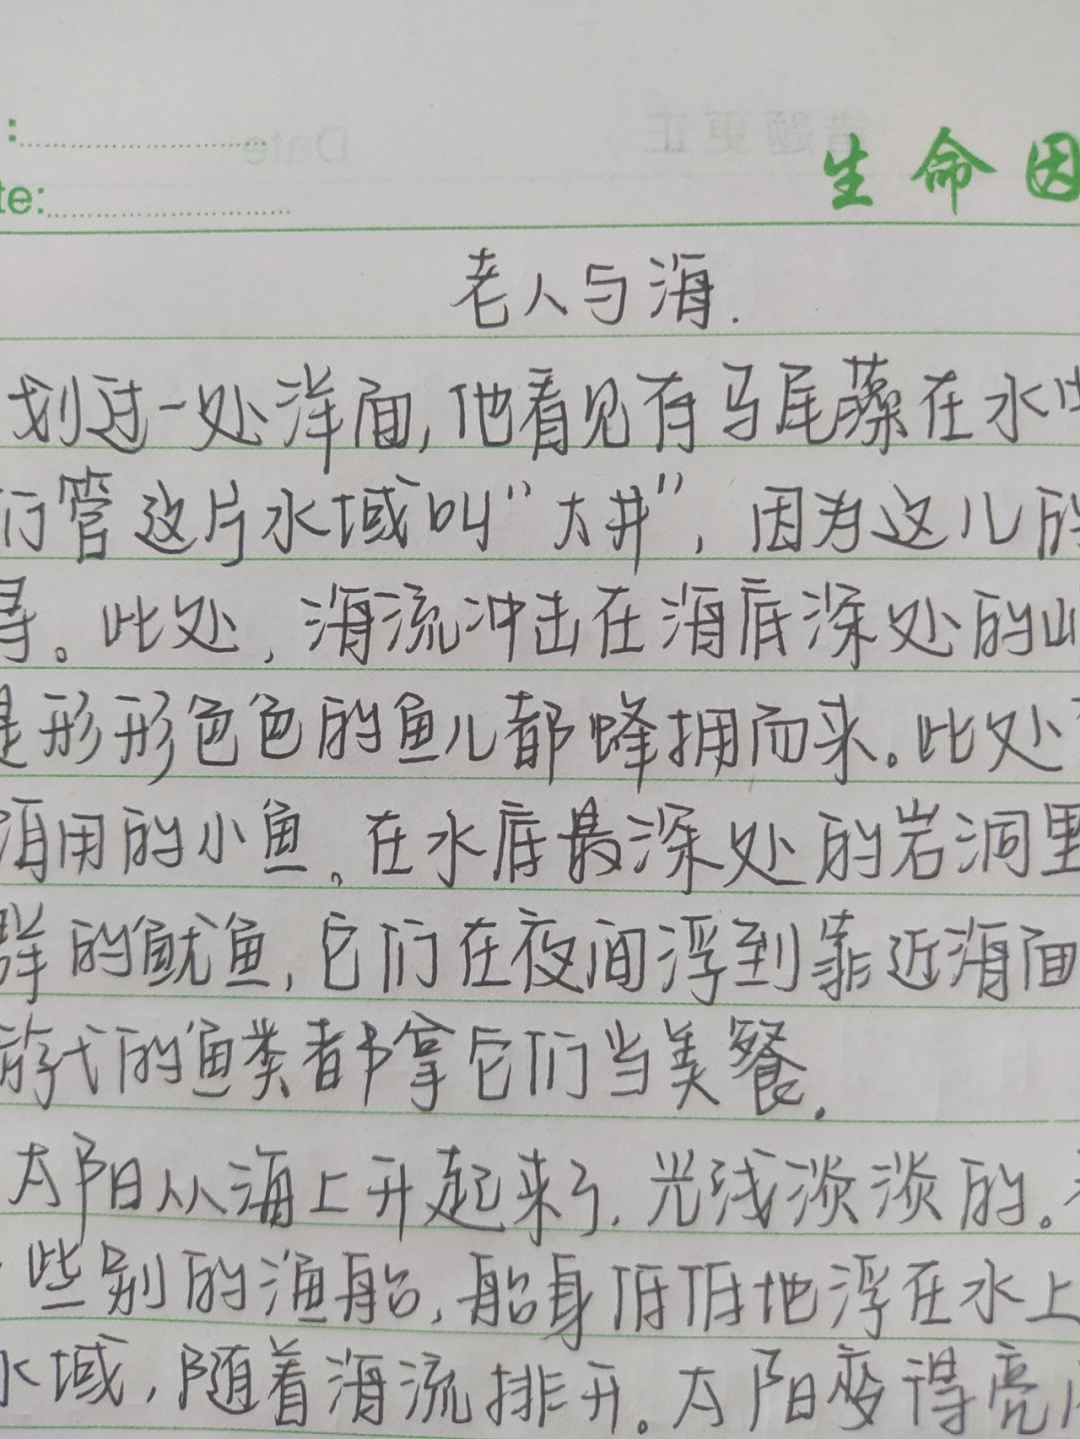 :
te:
生命因
老人与海.
划过一处洋面,他看见有马尾藻在水中
们管这片水域叫“大井”,因为这儿的
得。此处,海流冲击在海底深处的山
是形形色色的鱼儿都蜂拥而来。此处
饵用的小鱼。在水底最深处的岩洞里
群的鱿鱼,它们在夜间浮到靠近海面
游弋的鱼类都拿它们当美餐.
太阳从海上升起来了.光线淡淡的。
一些别的渔船,船身低低地浮在水上
水域,随着海流排开。太阳变得亮